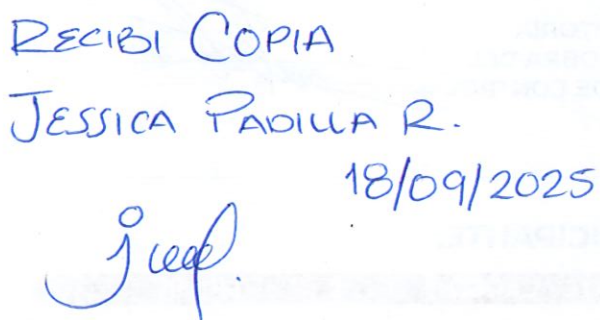 RECIBI COPIA
JESSICA PADILLA R.
18/09/2025